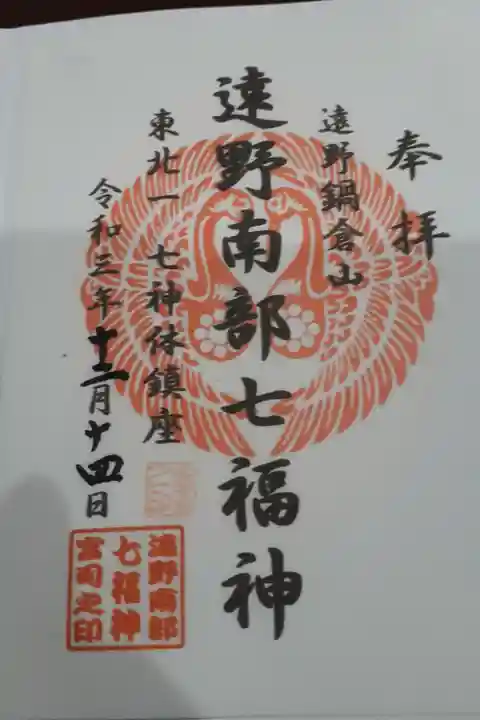 奉拝
遠野鍋倉山
遠野南部七福神
東北一七神体鎮座
令和三年十二月十四日
遠野南部
七福神
宮司之印